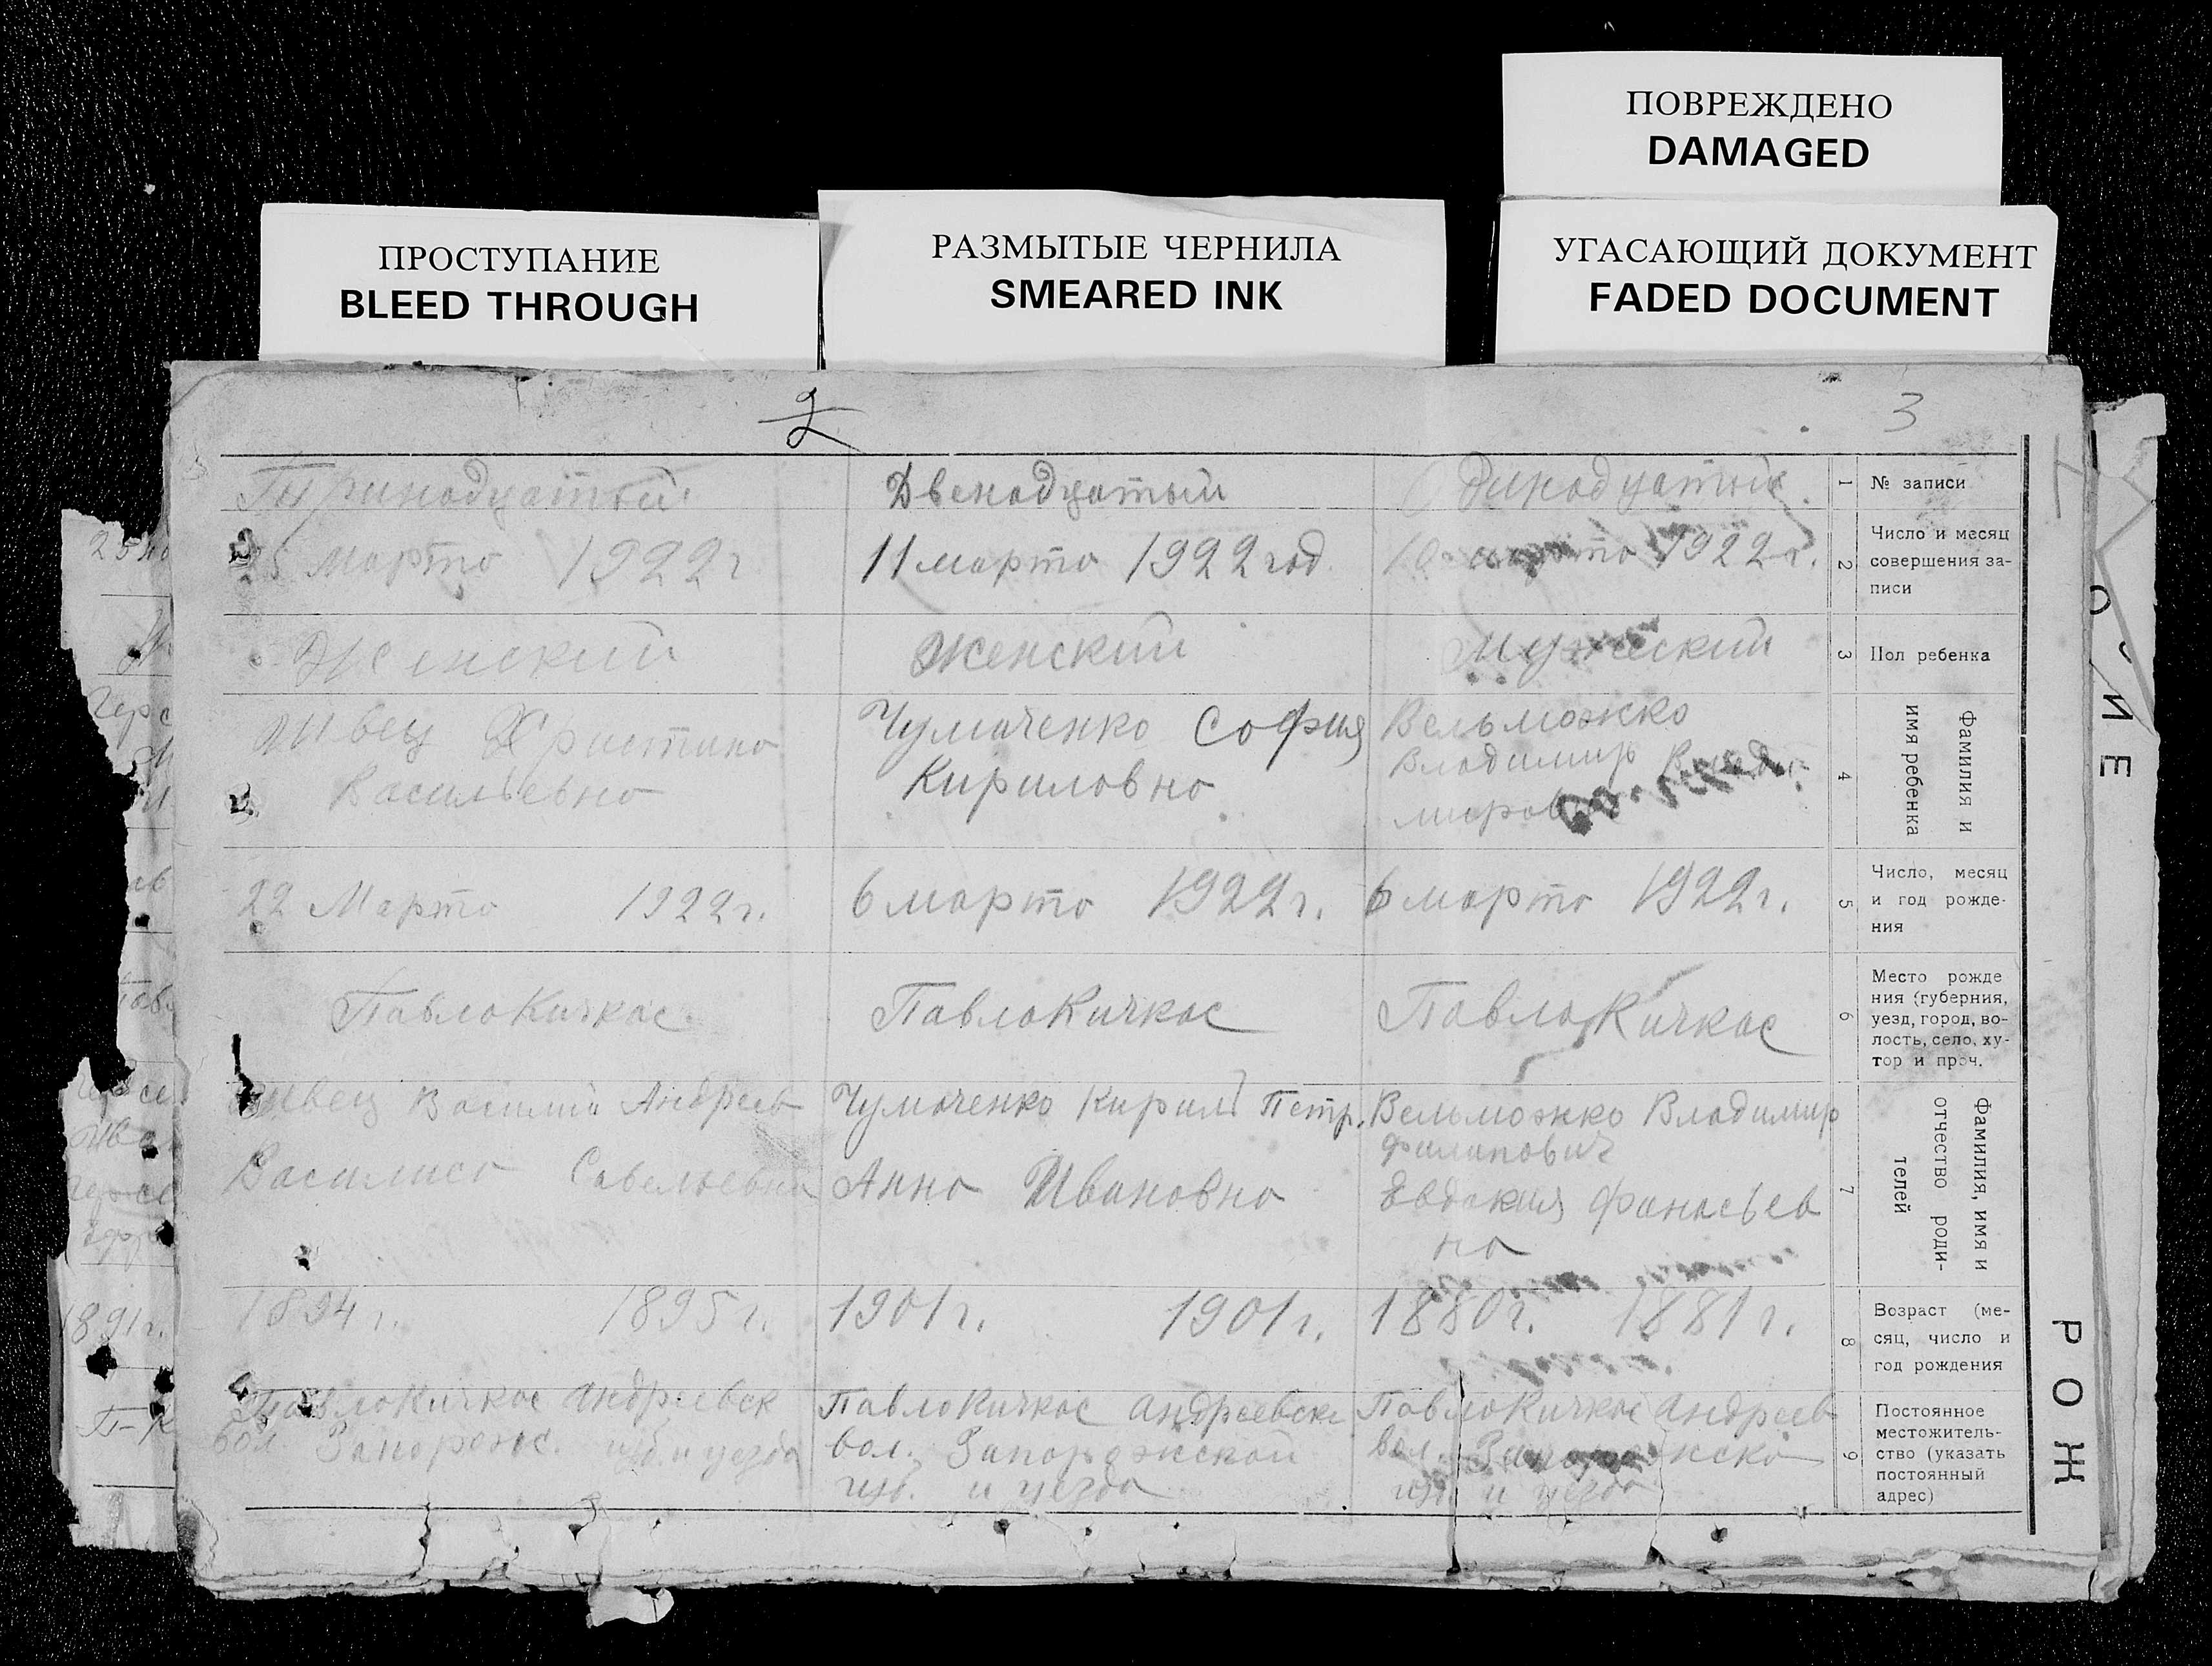 ПОВРЕЖДЕНО
DAMAGED
ПРОСТУПАНИЕ
BLEED THROUGH
РАЗМЫТЫЕ ЧЕРНИЛА
SMEARED INK
УГАСАЮЩИЙ ДОКУМЕНТ
FADED DOCUMENT
2
3
Тринадцатый
Двенадцатый
Одинадцатый
1
№ записи
25 Марта 1922 г
11 марта 1922 год
10 марта 1922 г.
2
Число и месяц
совершения за-
писи
Женский
Женский
Мужеский
3
Пол ребенка
Швец Христина
Васильевна
Чумаченко София
Кириловна
Вельможко
Владимир Влади-
мирович
4
Фамилия и
имя ребенка
22 Марта 1922 г.
6 марта 1922 г.
6 марта 1922 г.
5
Число, месяц
и год рожде-
ния
ПавлоКичкас
ПавлоКичкас
ПавлоКичкас
6
Место рожде
ния (губерния,
уезд, город, во-
лость, село, ху-
тор и проч.
Швец Василий Андреев
Василиса Савельевна
Чумаченко Кирил Петр.
Анна Ивановна
Вельможко Владимир
Филипович
Евдокия Фанасьев
на
7
Фамилия, имя и
отчество роди-
телей
1894 г. 1895 г.
1901 г. 1901 г.
1880 г. 1881 г.
8
Возраст (ме-
сяц, число и
год рождения
ПавлоКичкас Андреевск
вол. Запорожс. губ. и уезда
ПавлоКичкас Андреевске
вол. Запорожской
губ. и уезда
ПавлоКичкас Андреев
вол. Запорожско
губ. и уезда
9
Постоянное
местожитель-
ство (указать
постоянный
адрес)
РОЖ
ИЕ
1891 г.